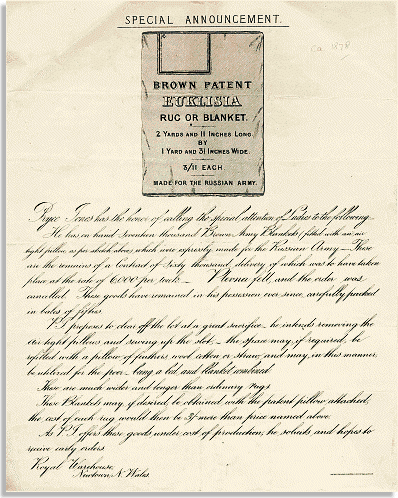 SPECIAL ANNOUNCEMENT.
ca 1878
BROWN PATENT
EUKLISIA
RUG OR BLANKET.
2 YARDS AND 11 INCHES LONG.
BY
1 YARD AND 31 INCHES WIDE.
3/11 EACH.
MADE FOR THE RUSSIAN ARMY.
Pryce Jones has the honor of calling the special attention of Ladies to the following.
He has on hand Seventeen thousand Brown Army Blankets (fitted with an air
tight pillow, as per sketch above) which were expressly made for the Russian Army – These
are the remains of a Contract of Sixty thousand, delivery of which was to have taken
place at the rate of 6,000 per week – Plevna fell, and the order was
cancelled. These goods have remained in his possession ever since, carefully packed
in bales of fifties.
P.J. proposes to clear off the lot at a great sacrifice, he intends removing the
air tight pillows and sewing up the slot, – the space may if required, be
refilled with a pillow of feathers wool cotton or straw, and may, in this manner
be utilized for the poor, being a bed, and blanket combined
These are much wider and longer than ordinary rugs
These Blankets may if desired, be obtained with the patent pillow attached,
the cost of each rug would then be 3/- more than price named above.
As P.J. offers these goods under cost of production, he solicits and hopes to
receive early orders
Royal Warehouse,
Newtown, N. Wales.